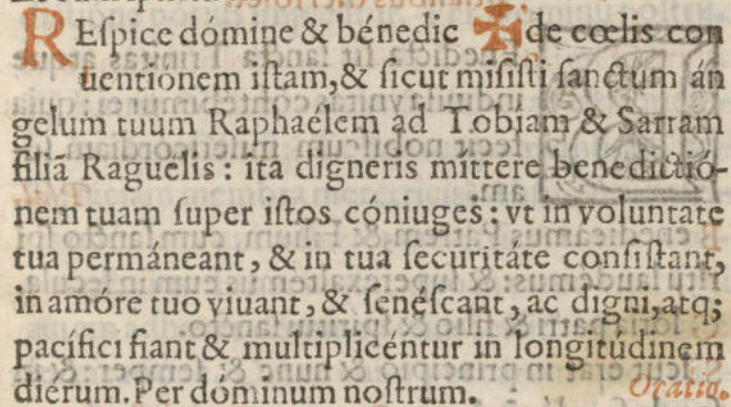 REſpice dómine & bénedic ✠ de cœlis con
uentionem iſtam, & ſicut miſiſti ſanctum án
gelum tuum Raphaélem ad Tobiam & Sarram
filiã Raguélis : ita digneris míttere benedictió-
nem tuam ſuper iſtos cóniuges : vt in voluntate
tua permáneant, & in tua ſecuritáte conſiſtant,
in amóre tuo viuant, & ſenéſcant, ac digni, atq;
pacífici fiant & multiplicéntur in longitúdinem
diérum. Per dóminum noſtrum. Oratio.